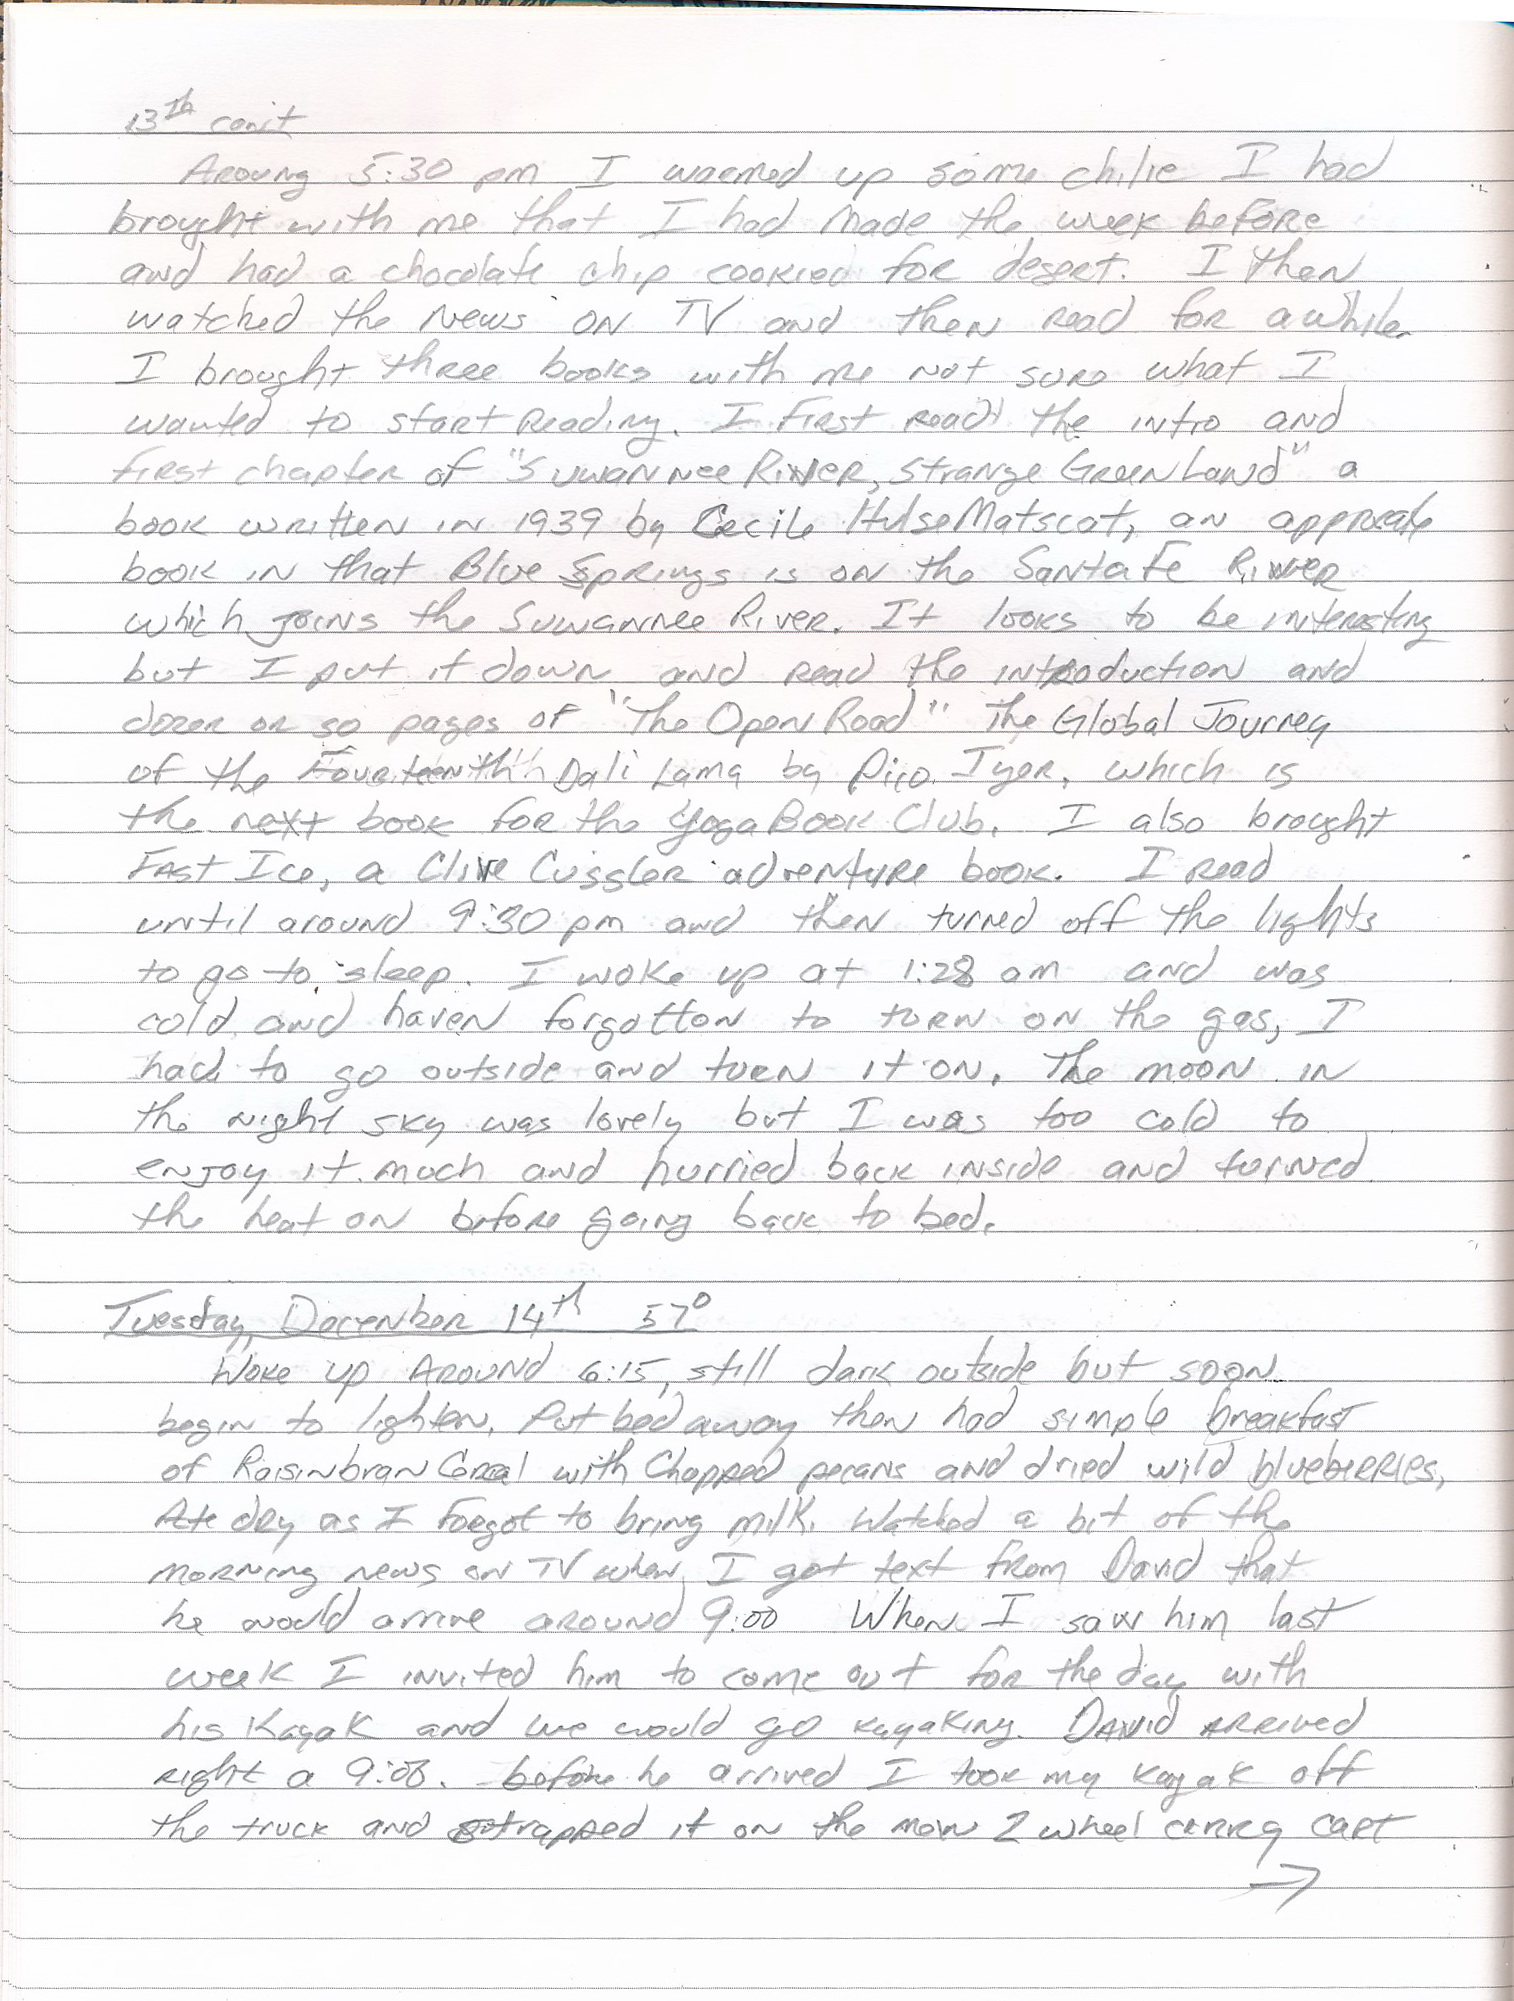 13th con't
Aroung 5:30 pm I warmed up some chilie I had
brought with me that I had made the week before
and had a chocolate chip cookied for desert. I then
watched the news on TV and then read for awhile.
I brought three books with me not sure what I
wanted to start reading. I first read the intro and
first chapter of "Suwannee River, Strange Green Land" a
book written in 1939 by Cecile Hulse Matscat, an appreate
book in that Blue Springs is on the Santa Fe River
which joins the Suwannee River. It looks to be interesting
but I put it down and read the introduction and
dozen or so pages of "The Open Road" The Global Journey
of the Fourteenth Dali Lama by Pico Iyer, which is
the next book for the Yoga Book Club. I also brought
Fast Ice, a Clive Cussler adventure book. I read
until around 9:30 pm and then turned off the lights
to go to sleep. I woke up at 1:28 am and was
cold and haven forgotton to turn on the gas, I
had to go outside and turn it on. The moon in
the night sky was lovely but I was too cold to
enjoy it much and hurried back inside and turned
the heat on before going back to bed.
Tuesday, December 14th 57°
Woke up around 6:15, still dark outside but soon
begin to lighten. Put bed away then had simple breakfast
of Raisinbran Cereal with Chopped pecans and dried wild blueberries,
Ate dry as I forgot to bring milk. Watched a bit of the
morning news on TV when I got text from David that
he would arrive around 9:00 When I saw him last
week I invited him to come out for the day with
his Kayak and we would go kayaking. David arrived
right a 9:08. before he arrived I took my kayak off
the truck and strapped it on the new 2 wheel carry cart
→